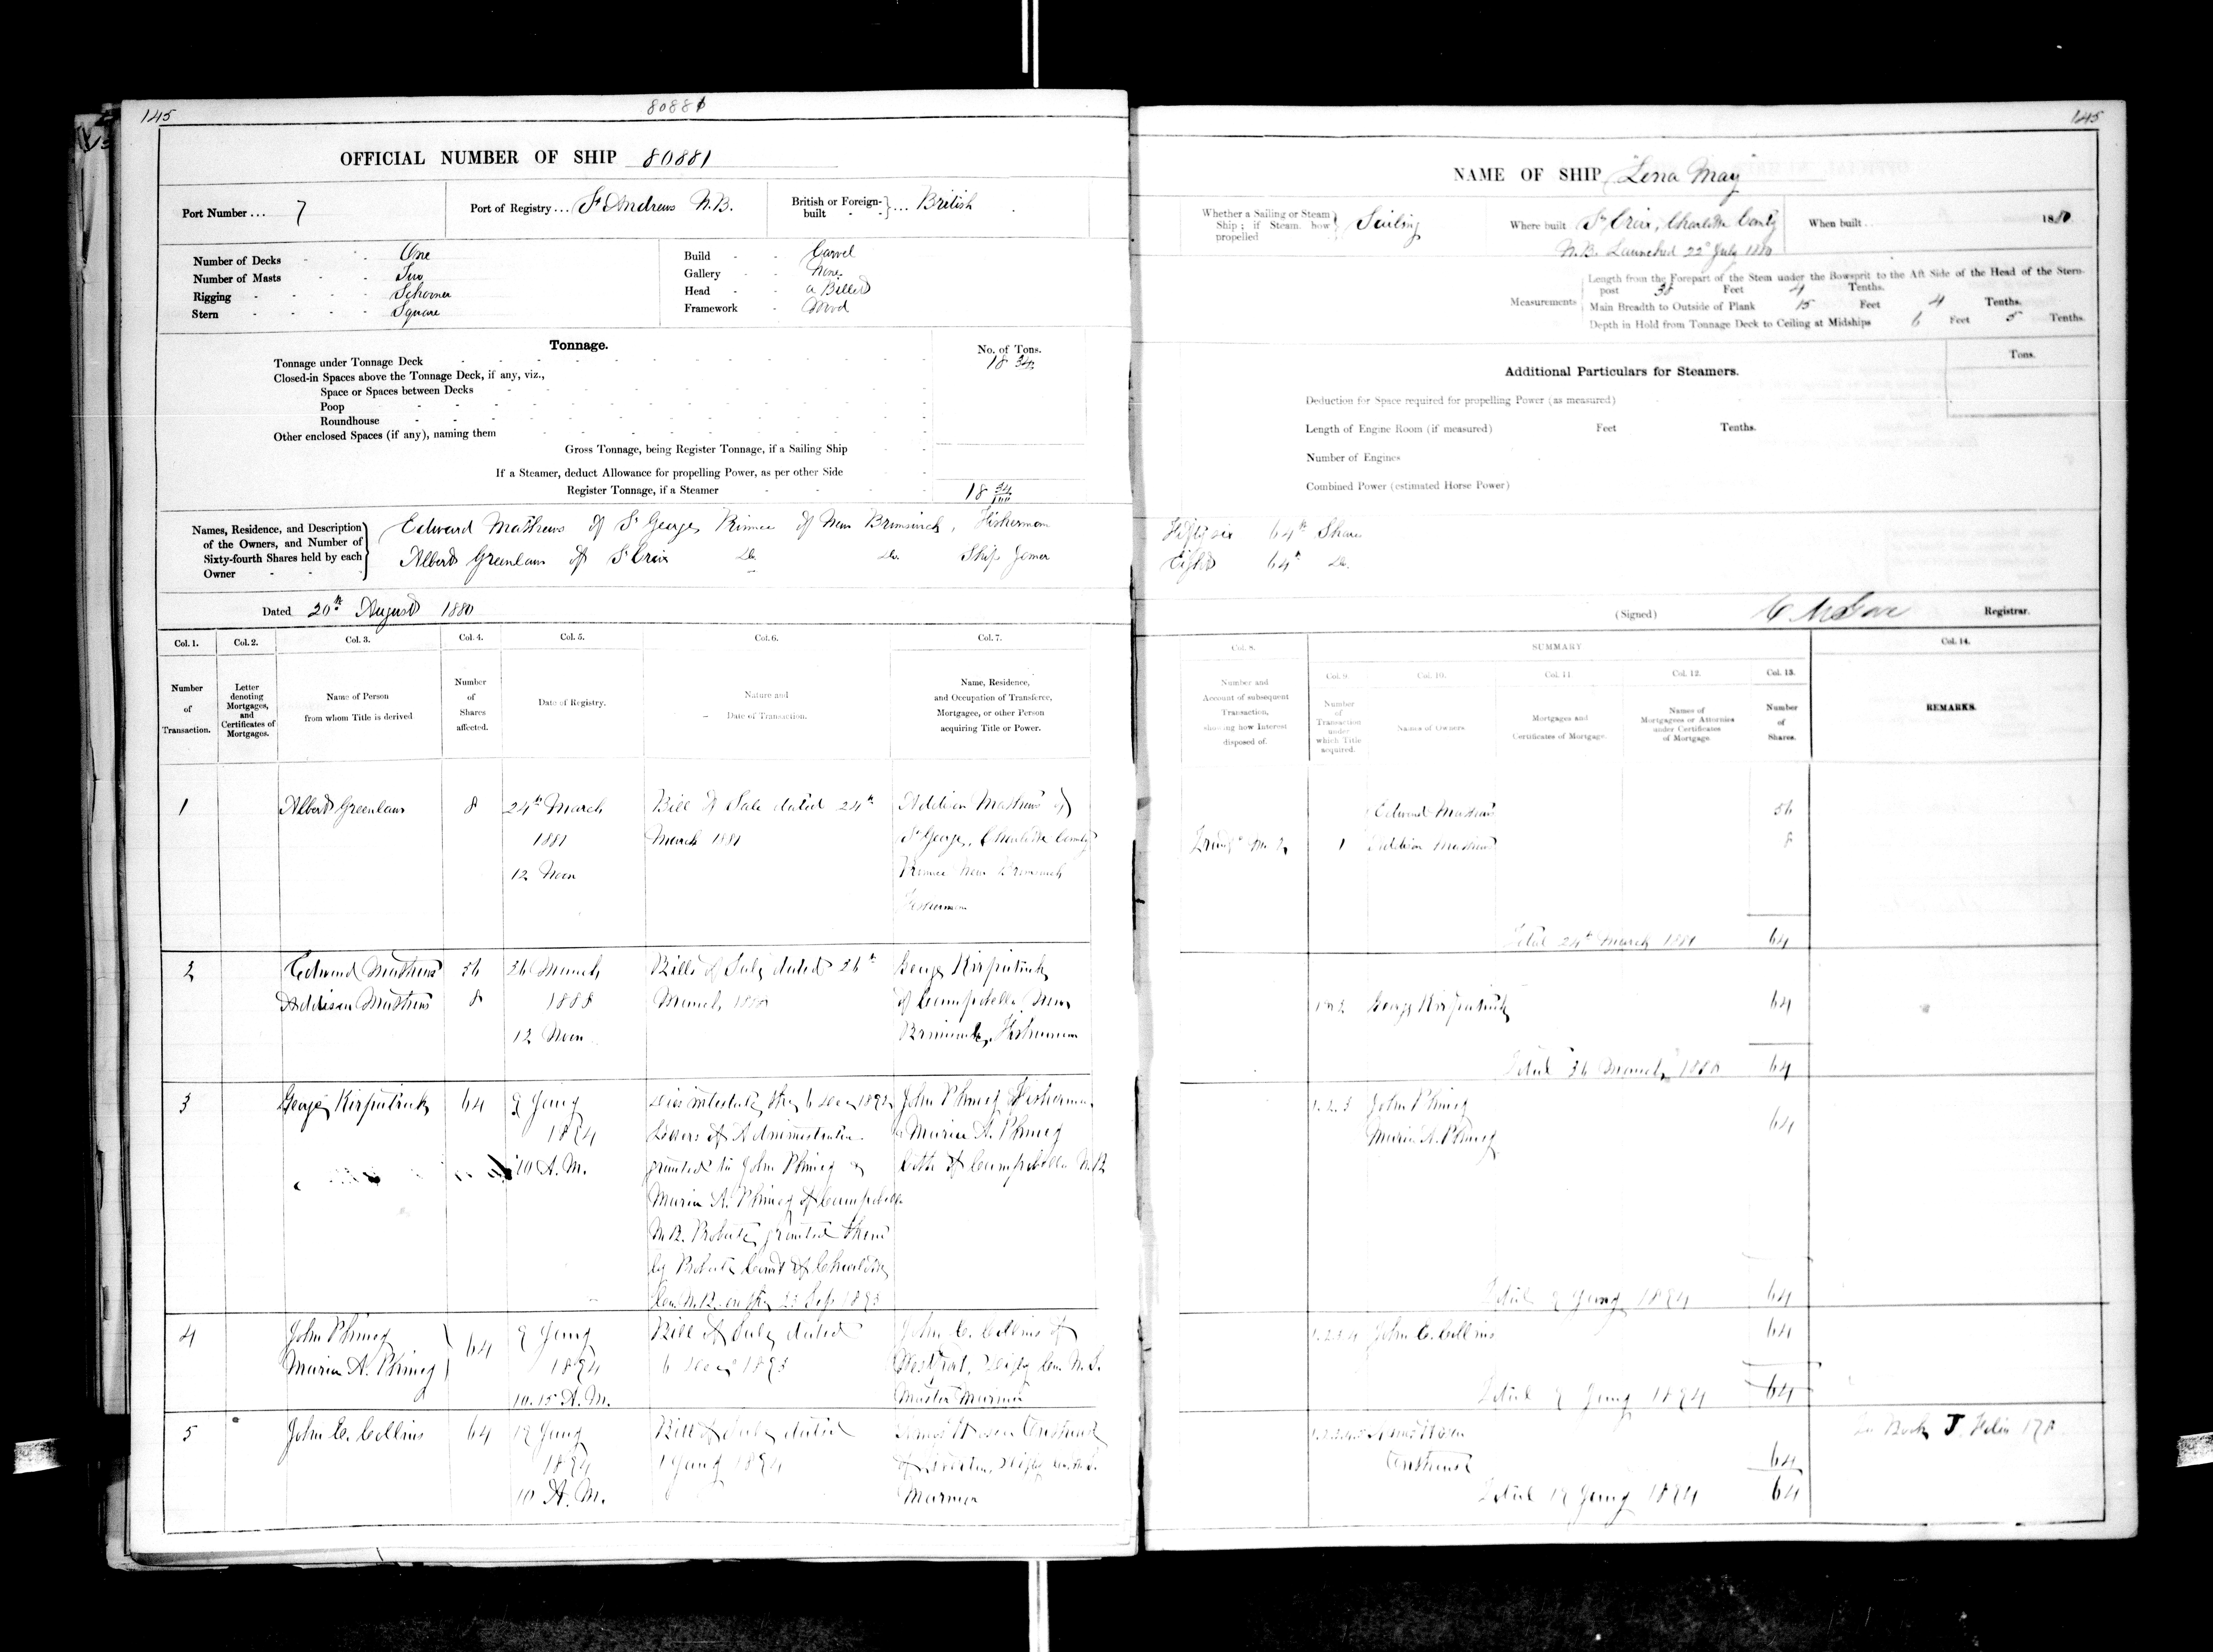 145
80881
OFFICIAL NUMBER OF SHIP 80881
Port Number ... 7
Port of Registry ... St Andrews N.B.
British or Foreign-built } ... British
Number of Decks - - One
Number of Masts - - Two
Rigging - - - - Schooner
Stern - - - - Square
Build - - Carvel
Gallery - - None
Head - - a Billet
Framework - Wood
Tonnage.
No. of Tons.
Tonnage under Tonnage Deck 18 34
Closed-in Spaces above the Tonnage Deck, if any, viz.,
Space or Spaces between Decks
Poop
Roundhouse
Other enclosed Spaces (if any), naming them
Gross Tonnage, being Register Tonnage, if a Sailing Ship
If a Steamer, deduct Allowance for propelling Power, as per other Side
Register Tonnage, if a Steamer 18 34/100
Names, Residence, and Description of the Owners, and Number of Sixty-fourth Shares held by each Owner
Edward Mathews of St George, Province of New Brunswick, Fisherman
Albert Greenlaw of St Croix Do. Do. Ship Joiner
Dated 20th August 1880
Col. 1. Col. 2. Col. 3. Col. 4. Col. 5. Col. 6. Col. 7.
Number of Transaction.
Letter denoting Mortgages, and Certificates of Mortgages.
Name of Person from whom Title is derived
Number of Shares affected.
Date of Registry.
Nature and Date of Transaction.
Name, Residence, and Occupation of Transferee, Mortgagee, or other Person acquiring Title or Power.
1 Albert Greenlaw 8 24th March Bill of Sale dated 24th Addison Mathews of
1881 March 1881 St George, Charlotte County
12 Noon Province New Brunswick
Fisherman
2 Edward Mathews 56 26 March Bills of Sale dated 26th George Kirpatrick
Addison Mathews 8 1888 March, 1888 of Campobello New
12 Noon Brunswick, Fisherman
3 George Kirpatrick 64 9 Jany 1894 John Phinney Fisherman
1894 Letters of Administration & Maria A. Phinney
10 A.M. granted to John Phinney & both of Campobello N.B.
Maria A. Phinney of Campobello
N.B. Probate granted them
by Probate Court of Charlotte
Con. N.B. on the 23 Sep. 1893
4 John Phinney 64 9 Jany Bill of Sale dated John E. Collins of
Maria A. Phinney 1894 6 Decr 1893 Westport, Digby Con. N.S.
10.15 A.M. Master Mariner
5 John E. Collins 64 19 Jany Bill of Sale dated
1894 1 Jany 1894
10 A.M. Mariner
145
NAME OF SHIP "Lena May"
Whether a Sailing or Steam Ship; if Steam, how propelled } Sailing
Where built St Croix, Charlotte County
N.B. Launched 22d July 1880
When built 1880
Measurements
Length from the Forepart of the Stem under the Bowsprit to the Aft Side of the Head of the Stern-post 38 Feet 4 Tenths.
Main Breadth to Outside of Plank 15 Feet 4 Tenths.
Depth in Hold from Tonnage Deck to Ceiling at Midships 6 Feet 5 Tenths.
Additional Particulars for Steamers.
Tons.
Deduction for Space required for propelling Power (as measured)
Length of Engine Room (if measured) Feet Tenths.
Number of Engines
Combined Power (estimated Horse Power)
Fifty six 64th Shares
Eight 64th Do.
(Signed) Registrar.
Col. 8. SUMMARY Col. 14.
Col. 9 Col. 10. Col. 11 Col. 12. Col. 13.
Number and Account of subsequent Transaction, showing how Interest disposed of.
Number of Transaction under which Title acquired.
Names of Owners
Mortgages and Certificates of Mortgage.
Names of Mortgagees or Attornies under Certificates of Mortgage.
Number of Shares.
REMARKS.
Edward Mathews 56
1 Addison Mathews 8
Total 24th March 1881 64
1 & 2 George Kirpatrick 64
Total 26 March, 1888 64
1.2.3 John Phinney
Maria A. Phinney 64
Total 9 Jany 1894 64
1.2.3.4 John E. Collins 64
Total 9 Jany 1894 64
1.2.3.4.5
64
Total 19 Jany 1894 64
Book J. Folio 178